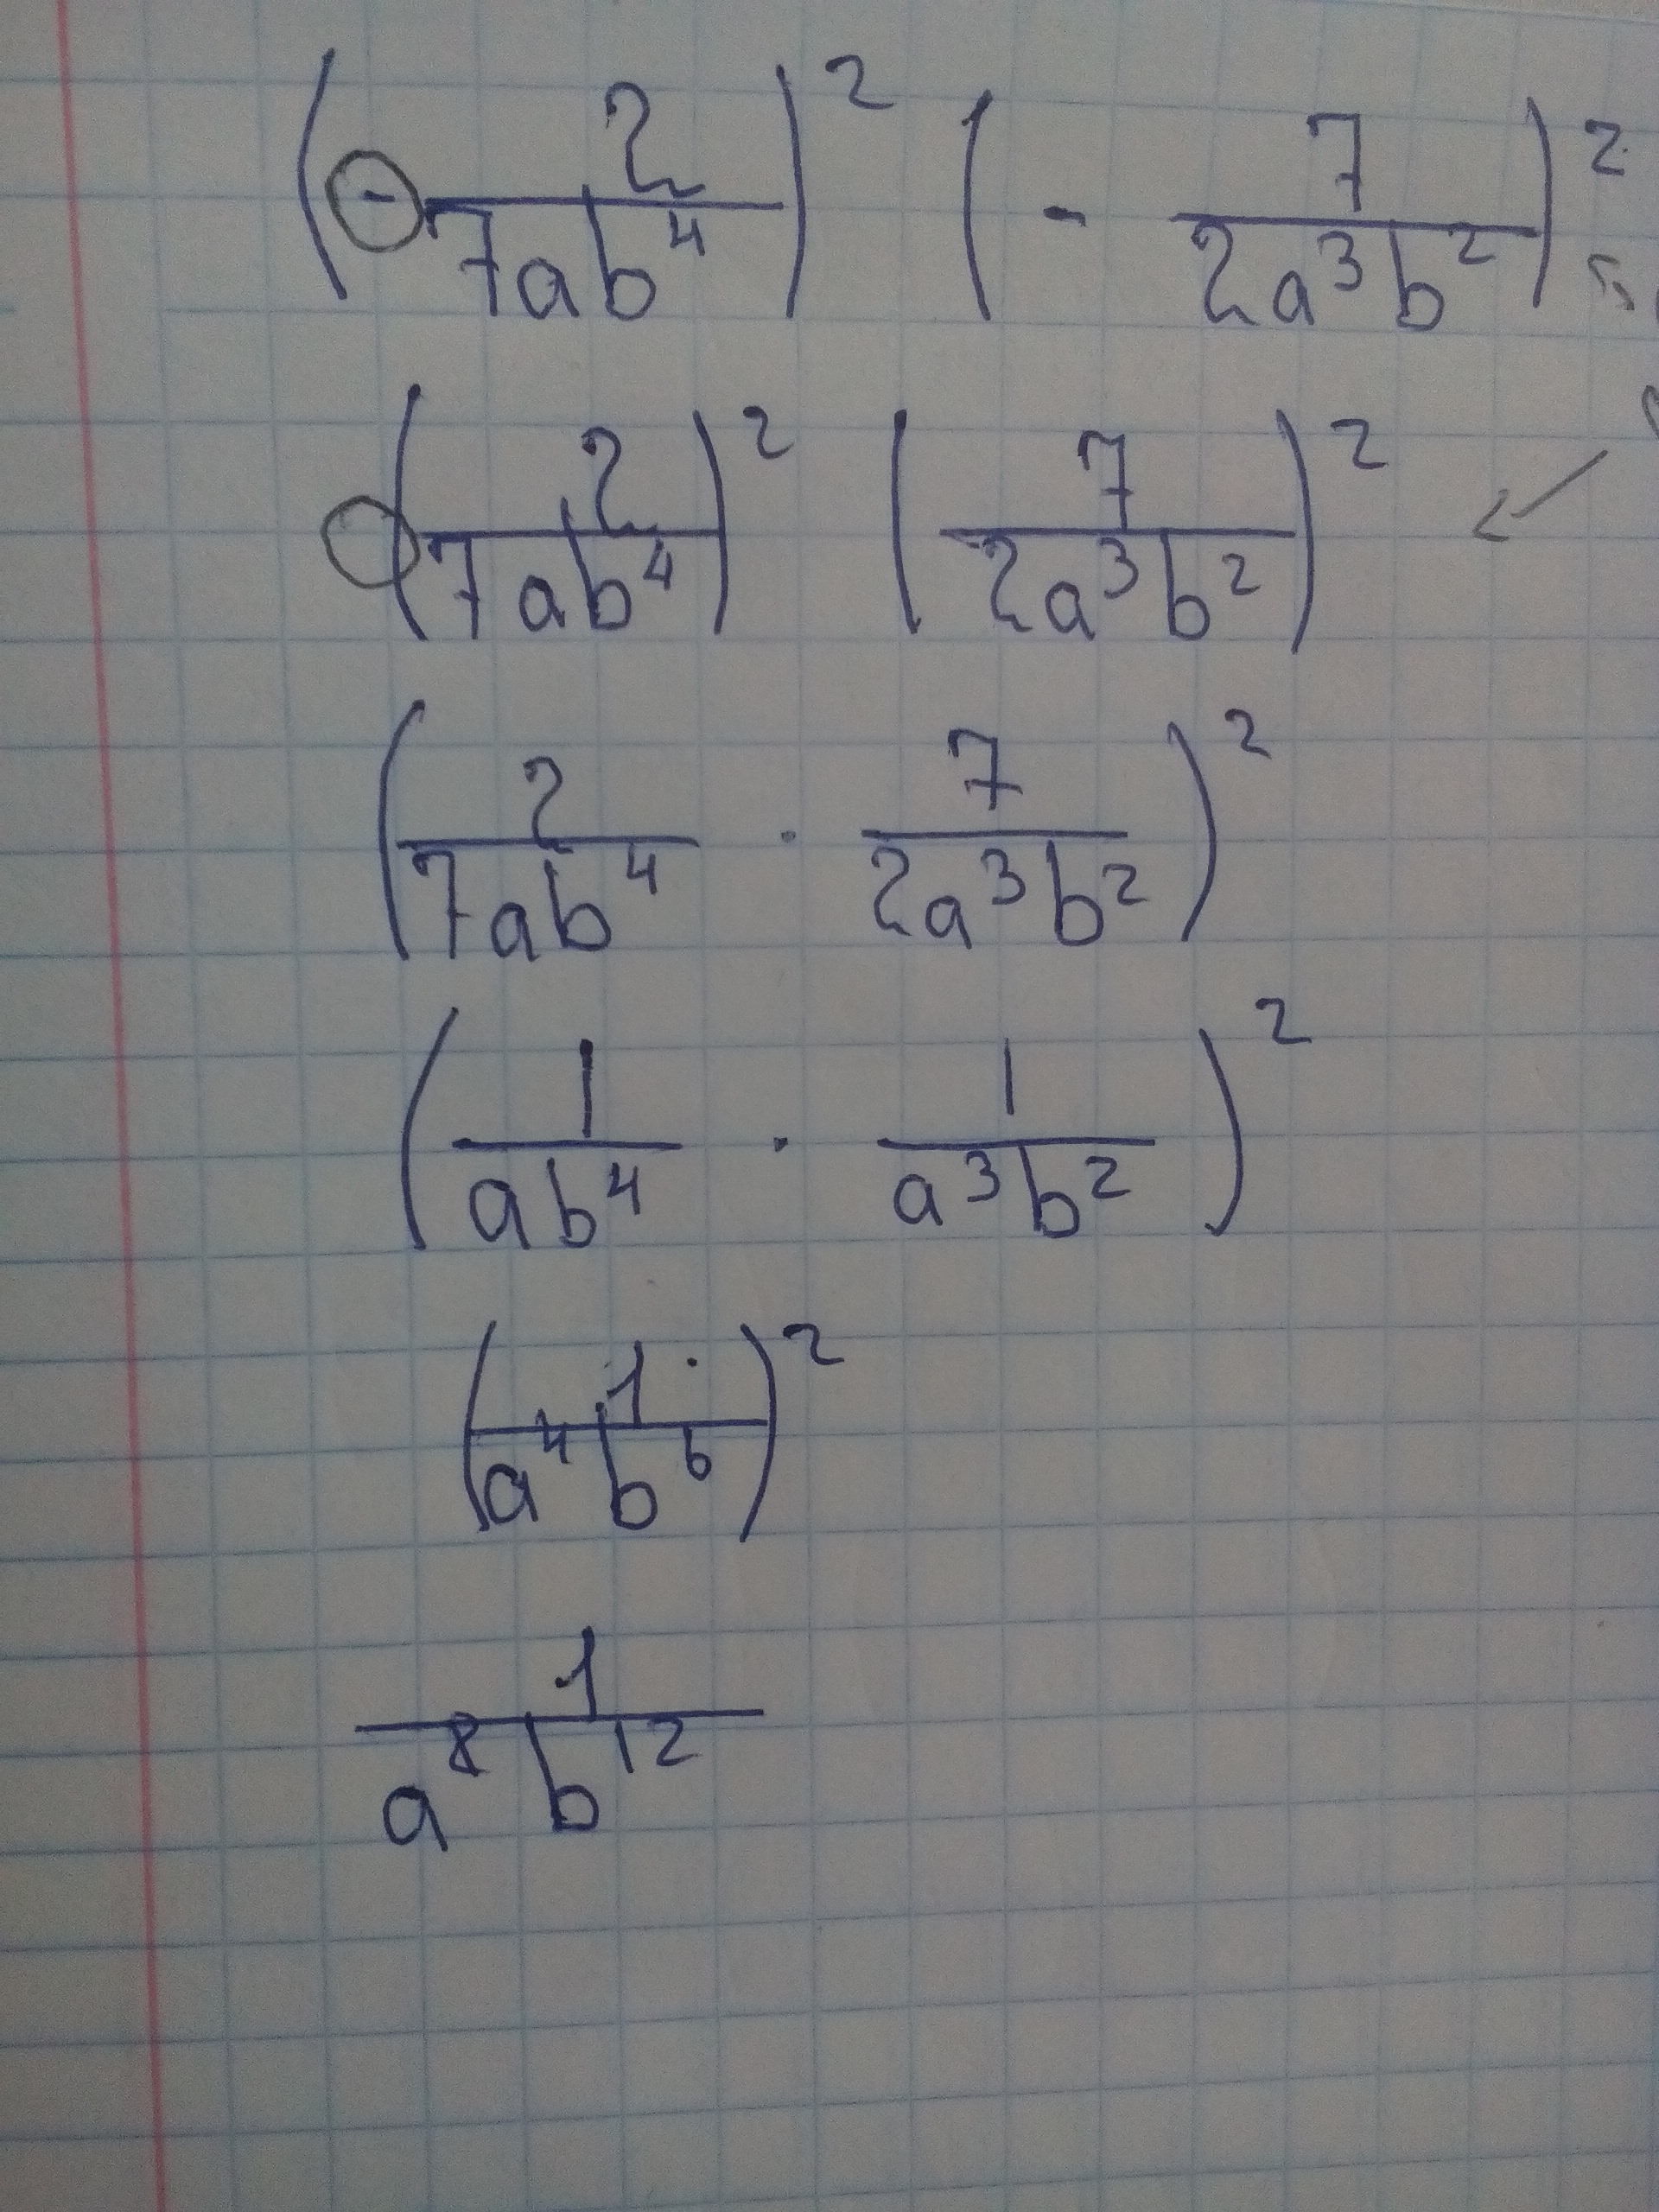 (- 2/(7ab⁴))² (- 7/(2a³b²))²
(2/(7ab⁴))² (7/(2a³b²))²
(2/(7ab⁴) · 7/(2a³b²))²
(1/(ab⁴) · 1/(a³b²))²
(1/(a⁴b⁶))²
1/(a⁸b¹²)